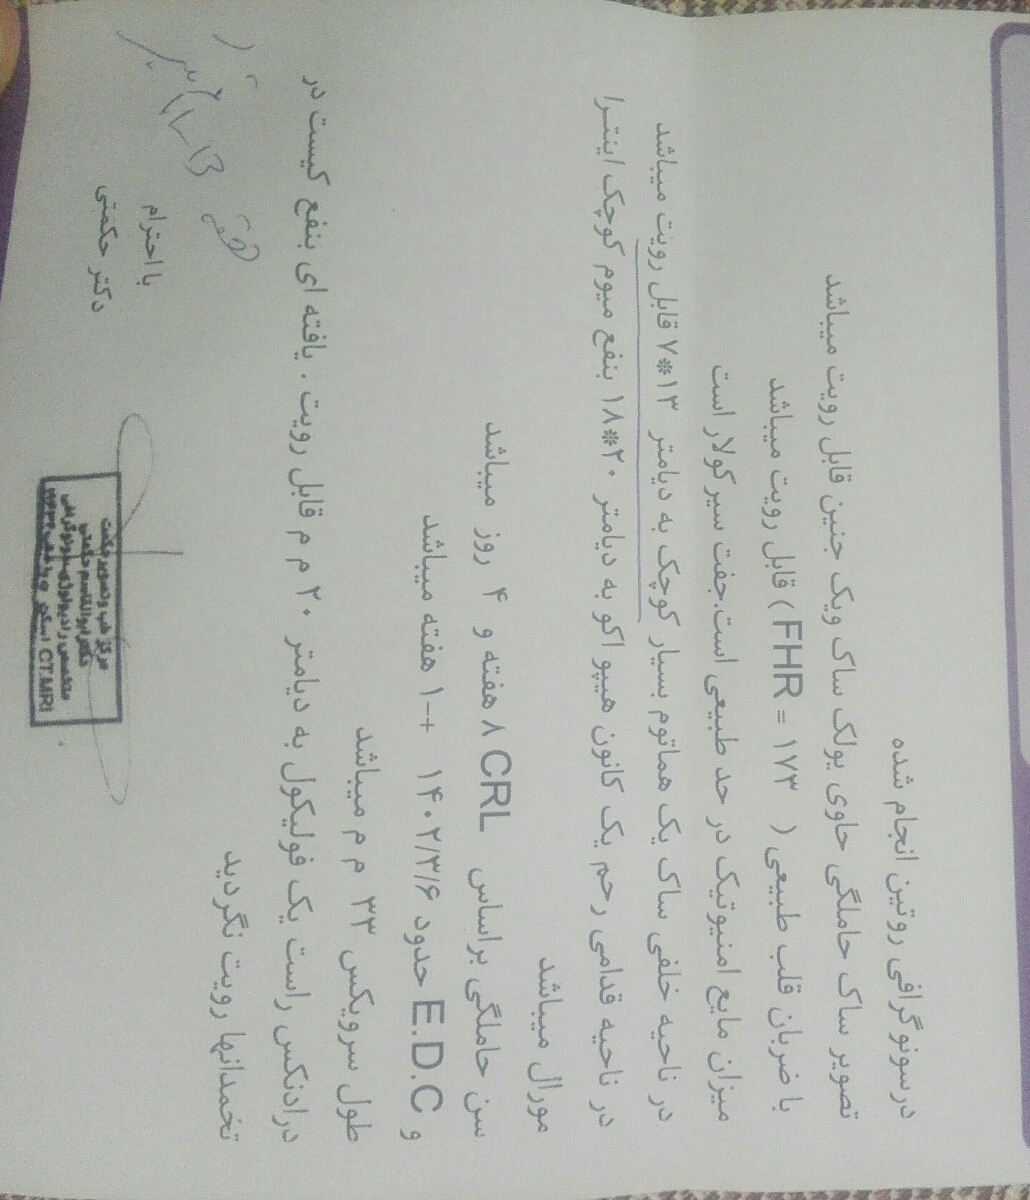 درسونوگرافی روتین انجام شده
تصویر ساک حاملگی حاوی یولک ساک ویک جنین قابل رویت میباشد
با ضربان قلب طبیعی ( FHR = ۱۷۳ ) قابل رویت میباشد
میزان مایع امنیوتیک در حد طبیعی است.جفت سیرکولار است
در ناحیه خلفی ساک یک هماتوم بسیار کوچک به دیامتر ۱۳*۷ قابل رویت میباشد
در ناحیه قدامی رحم یک کانون هیپو اکو به دیامتر ۲۰*۱۸ بنفع میوم کوچک اینترا
مورال میباشد
سن حاملگی براساس CRL ۸ هفته و ۴ روز میباشد
و E.D.C حدود ۱۴۰۲/۳/۶ +-۱ هفته میباشد
طول سرویکس ۳۳ م م میباشد
درادنکس راست یک فولیکول به دیامتر ۲۰ م م قابل رویت . یافته ای بنفع کیست در
تخمدانها رویت نگردید
با احترام
دکتر حکمتی
مرکز طب و تصویر حکمت
دکتر ابوالقاسم حکمتی
متخصص رادیولوژی سونوگرافی
CT.MRI اسکن